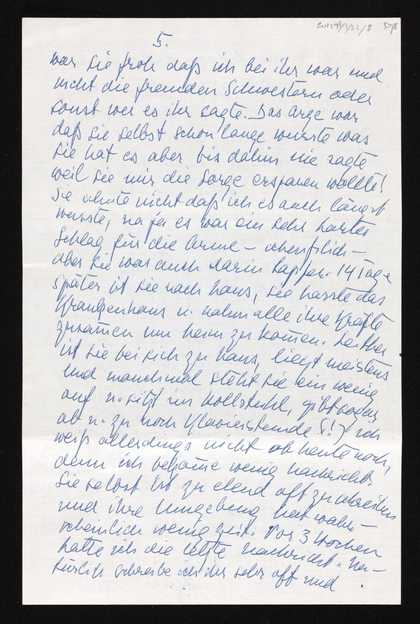 5.
war sie froh daß ich bei ihr war und
nicht die fremden Schwestern oder
sonst wer es ihr sagte. Das arge war
daß sie selbst schon lange wusste was
sie hat es aber bis dahin nie sagte
weil sie mir die Sorge ersparen wollte!
Sie ahnte nicht daß ich es auch längst
wusste, na ja es war ein sehr harter
Schlag für die Arme –
aber sie war auch darin tapfer. 14 Tage
später ist sie nach haus, sie hasste das
Krankenhaus u. nahm alle ihre Kräfte
zusamen um heim zu komen. Seither
ist sie bei sich zu haus, liegt meistens
und manchmal steht sie ein wenig
auf u. sitzt im Rollstuhl, gibt sogar
ab u. zu noch Klavierstunde S! Ich
weiß allerdings nicht ob heute noch,
denn ich bekome wenig nachricht.
Sie selbst ist zu elend oft zu schreiben
und ihre Umgebung hat wahr-
scheinlich wenig zeit. Vor 3 Wochen
hatte ich die letzte nachricht. Na-
türlich schreibe ich ihr sehr oft und